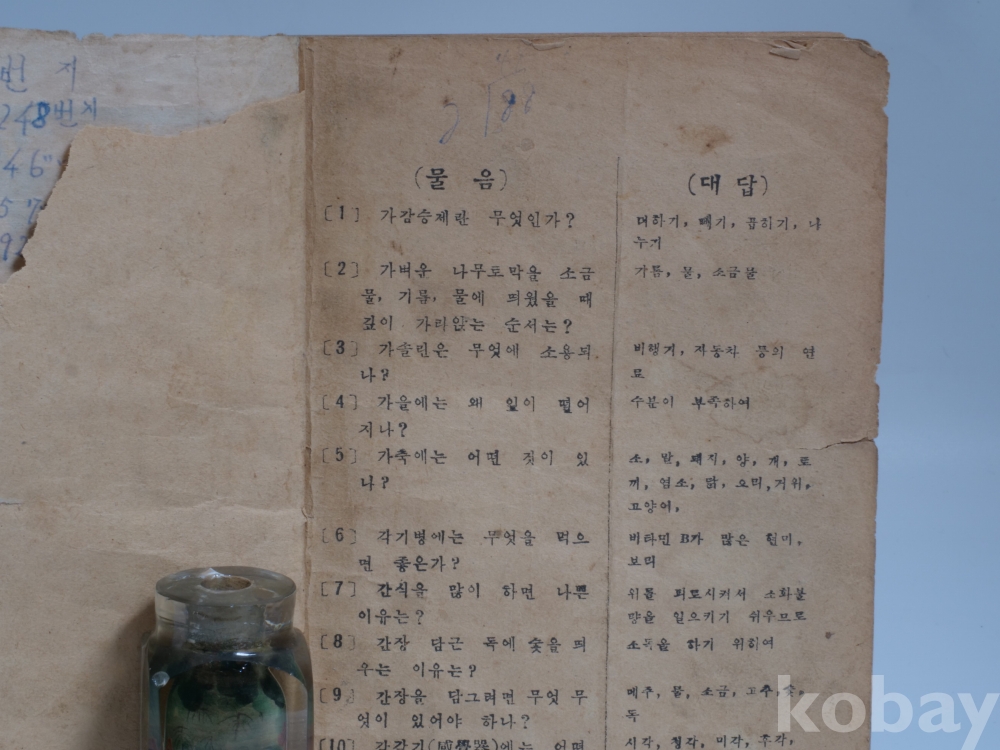 번 지
248번지
46"
57
92
2188
(물 음)
(대 답)
[1] 가감승제란 무엇인가?
더하기, 빼기, 곱하기, 나
누기
[2] 가벼운 나무토막을 소금
물, 기름, 물에 띄웠을 때
깊이 가라앉는 순서는?
기름, 물, 소금물
[3] 가솔린은 무엇에 소용되
나?
비행기, 자동차 등의 연
료
[4] 가을에는 왜 잎이 떨어
지나?
수분이 부족하여
[5] 가축에는 어떤 것이 있
나?
소, 말, 돼지, 양, 개, 토
끼, 염소, 닭, 오리, 거위,
고양이,
[6] 각기병에는 무엇을 먹으
면 좋은가?
비타민 B가 많은 현미,
보리
[7] 간식을 많이 하면 나쁜
이유는?
위를 피로시켜서 소화불
량을 일으키기 쉬우므로
[8] 간장 담근 독에 숯을 띄
우는 이유는?
소독을 하기 위하여
[9] 간장을 담그려면 무엇 무
엇이 있어야 하나?
메주, 물, 소금, 고추, 숯,
독
[10] 감각기(感覺器)에는 어떤
시각, 청각, 미각, 후각,
kobay